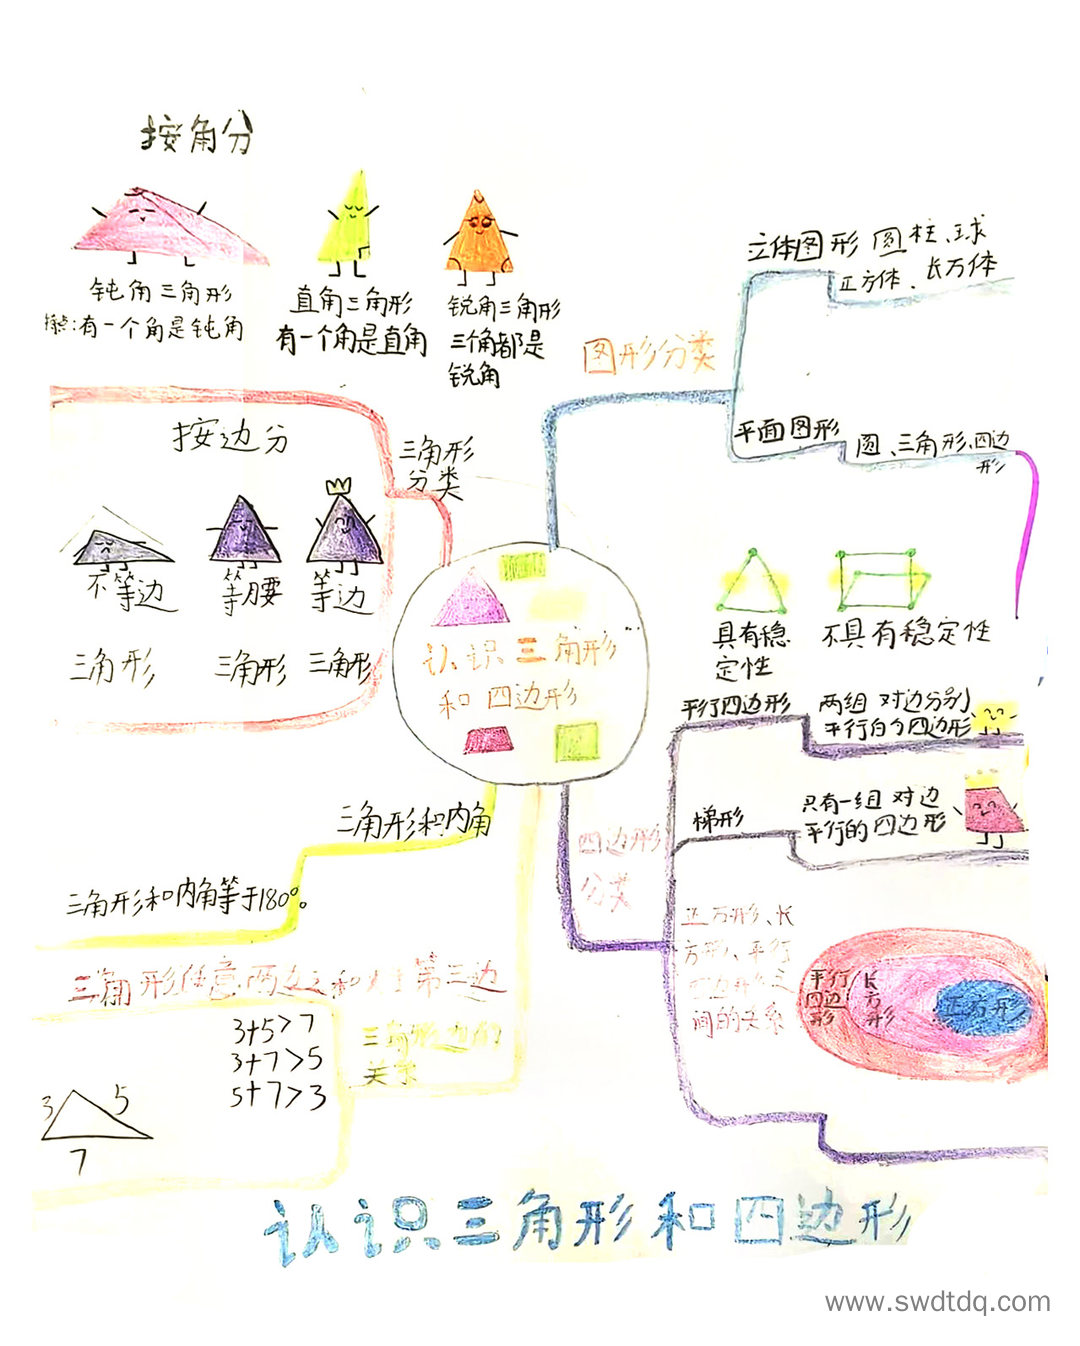 按角分
钝角三角形
有一个角是钝角
直角三角形
有一个角是直角
锐角三角形
三个角都是
锐角
三角形
分类
按边分
不等边
三角形
等腰
三角形
等边
三角形
图形分类
立体图形 圆柱、球
正方体、长方体
平面图形
圆、三角形、四边
形
具有稳
定性
不具有稳定性
认识三角形
和四边形
四边形
分类
平行四边形
两组对边分别
平行的四边形
梯形
只有一组对边
平行的四边形
正方形、长
方形、平行
四边形之
间的关系
平行
四边
形
长
方
形
正方形
三角形和内角
三角形和内角等于180°。
三角形任意两边之和大于第三边
三角形边的
关系
3+5>7
3+7>5
5+7>3
3
5
7
认识三角形和四边形
www.swdtdq.com